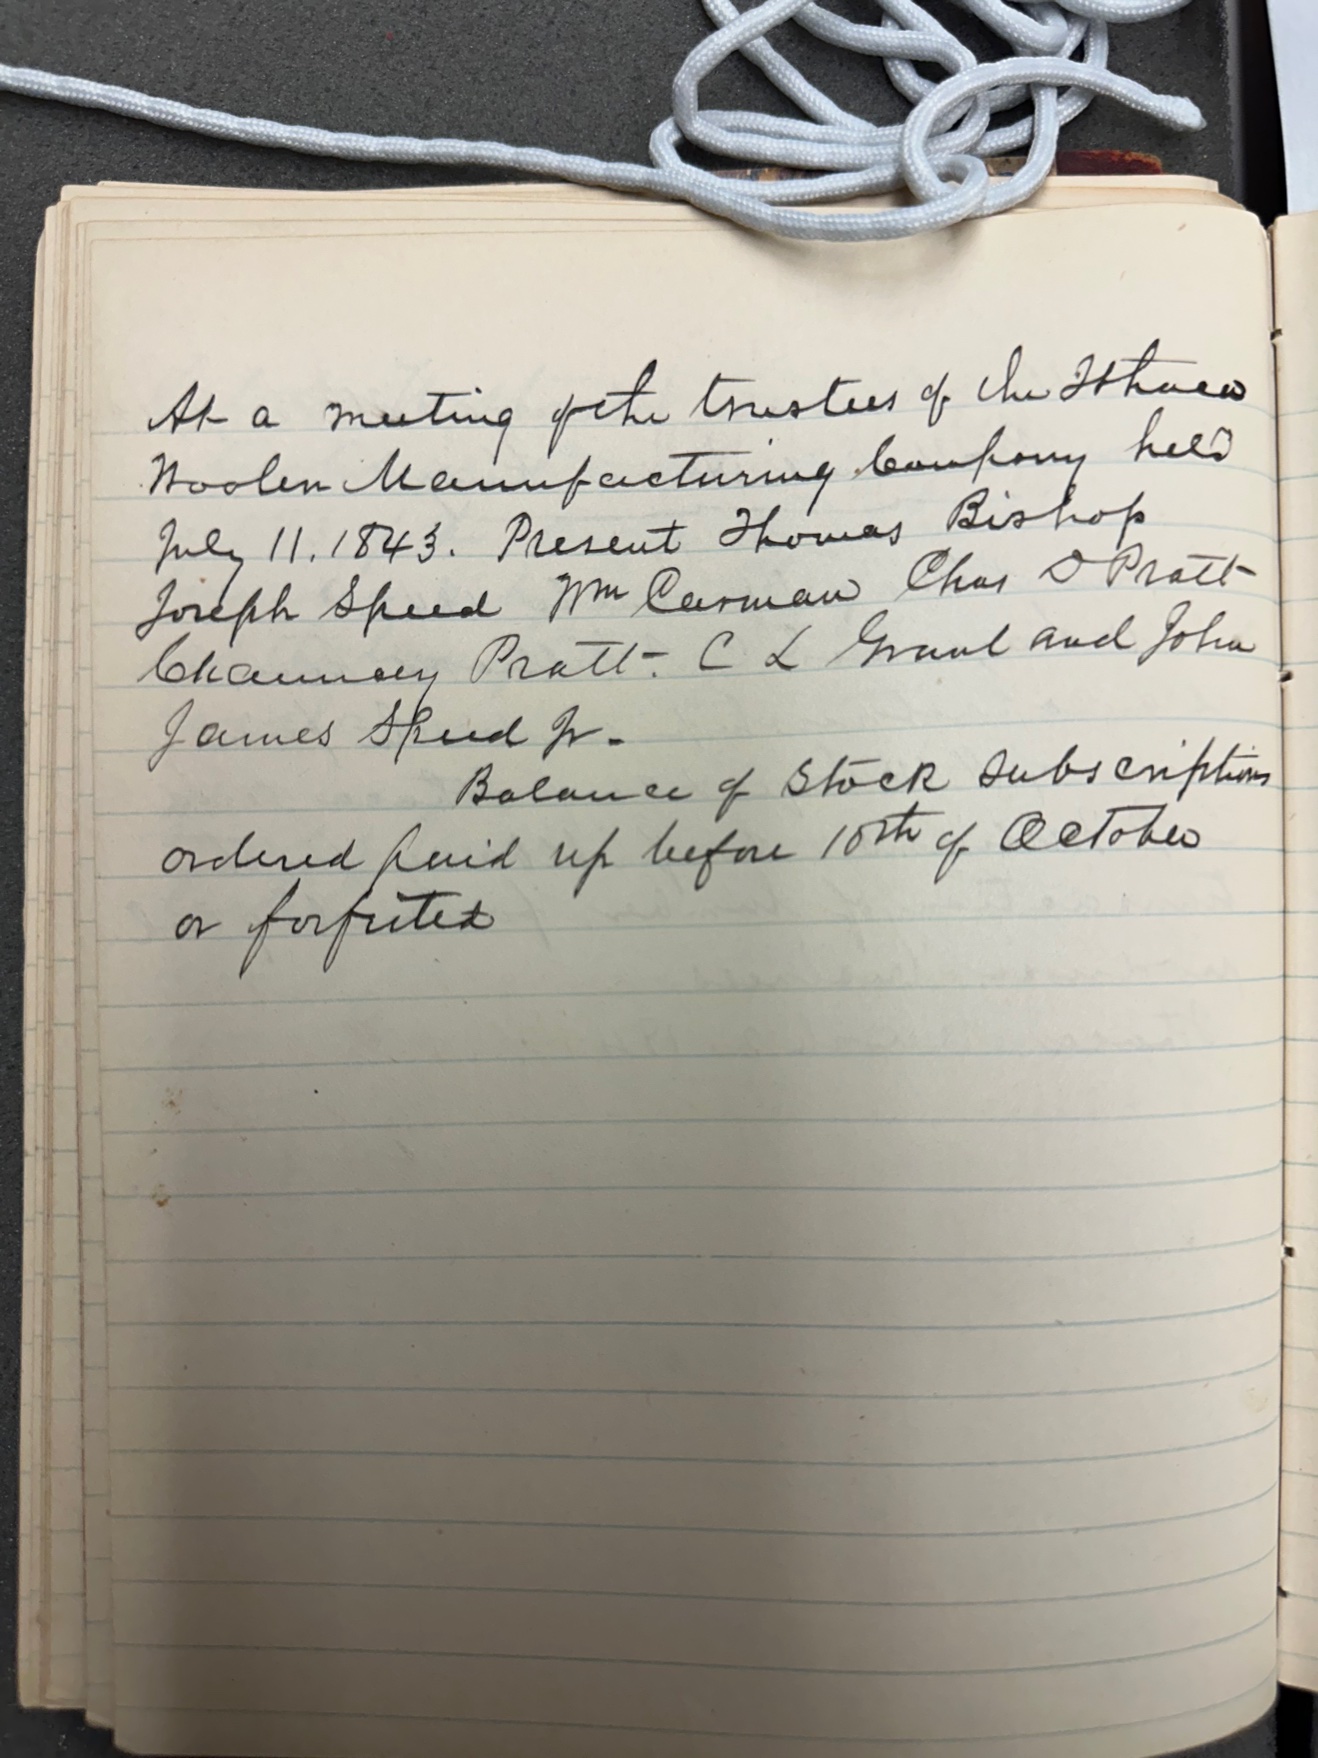 At a meeting of the trustees of the Ithaca
Woolen Manufacturing Company held
July 11. 1843. Present Thomas Bishop
Joseph Speed Wm Carman Chas D Pratt
Chauncey Pratt. C L Grant and John
James Speed Jr.
Balance of Stock subscriptions
ordered paid up before 10th of October
or forfeited